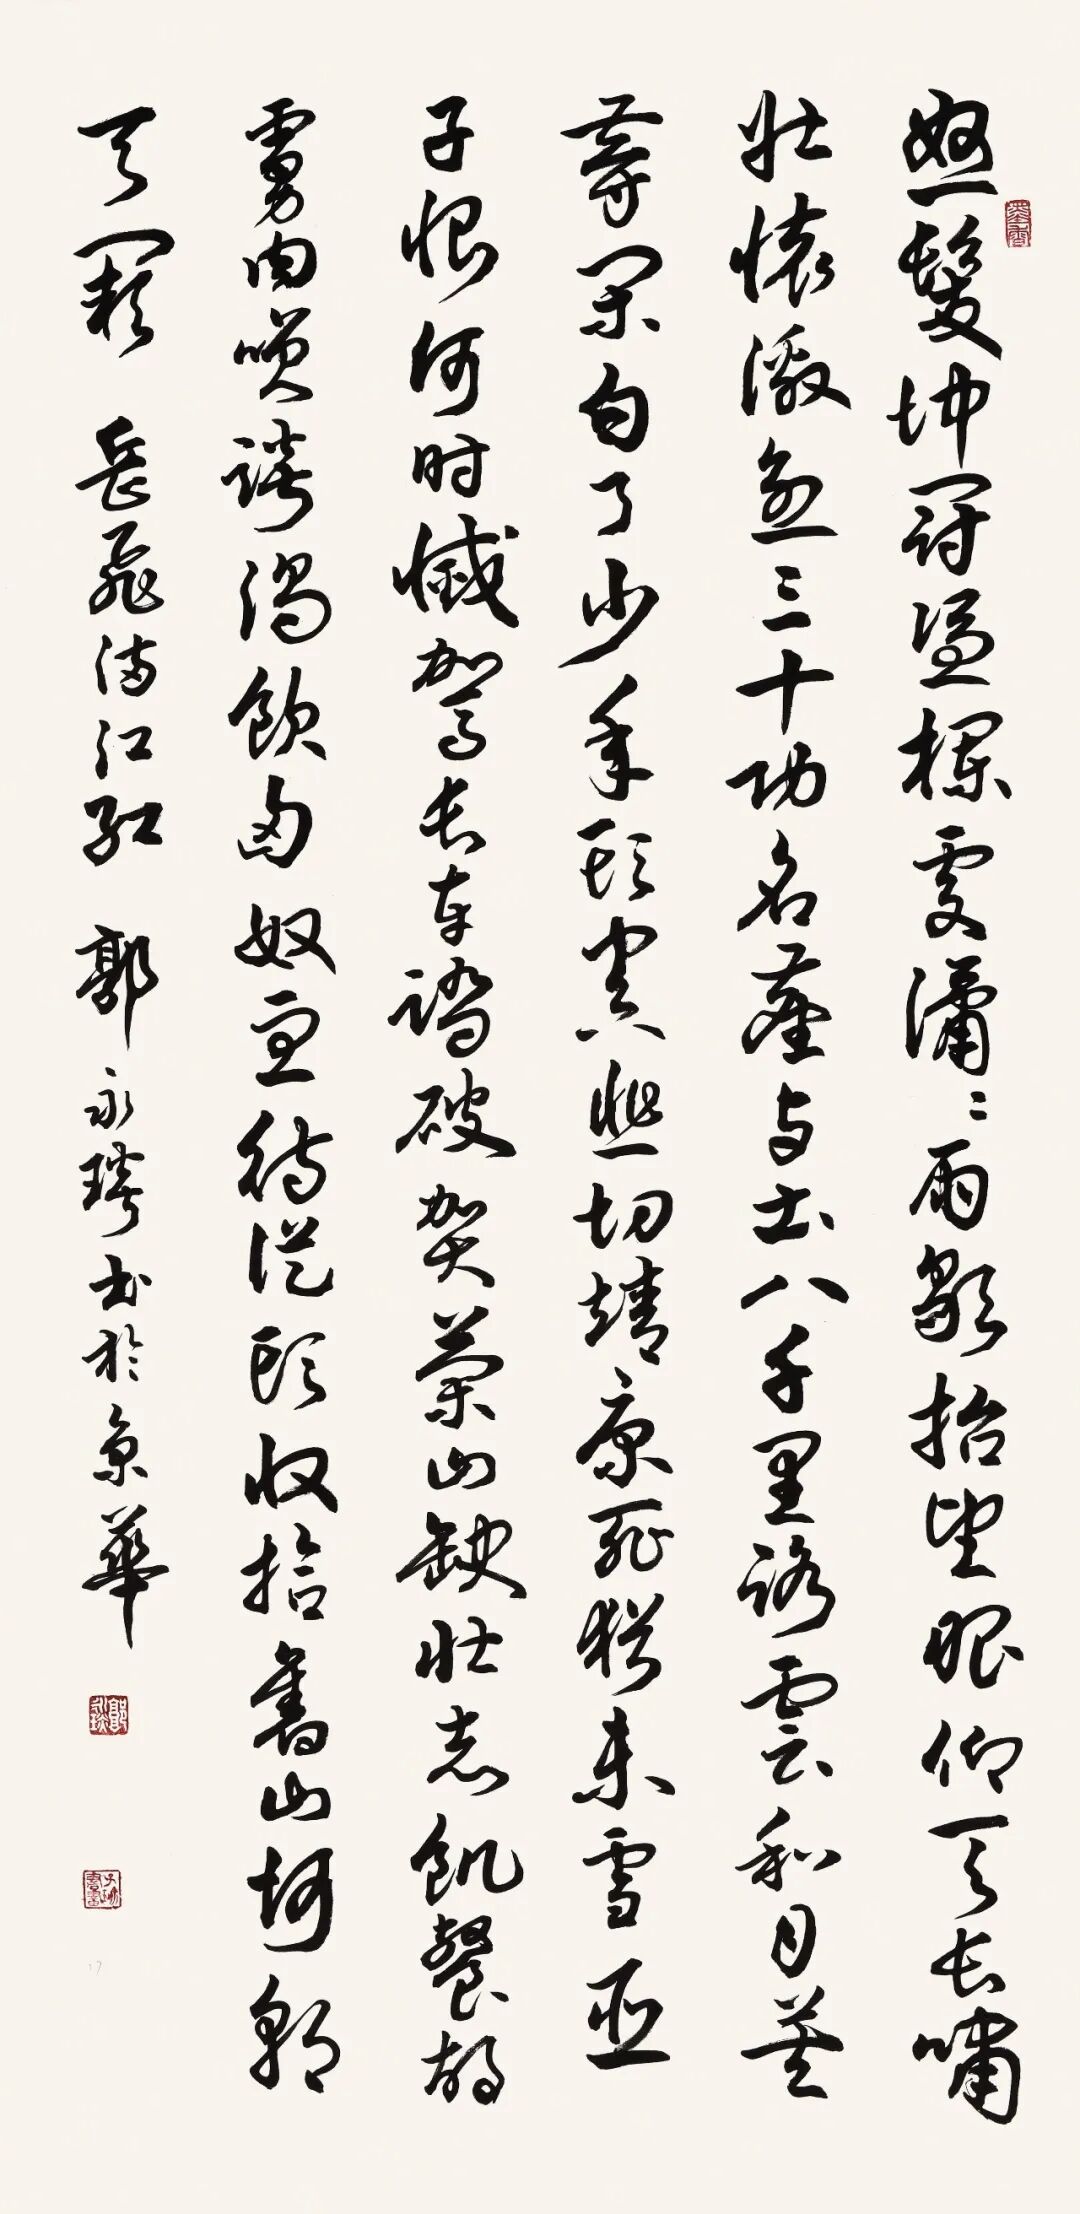 怒髮冲冠憑欄處瀟〻雨歇抬望眼仰天長嘯
壯懷激烈三十功名塵與土八千里路雲和月莫
等閑白了少年頭空悲切靖康恥猶未雪臣
子恨何時滅駕長車踏破賀蘭山缺壯志飢餐胡
虜肉笑談渴飲匈奴血待從頭收拾舊山河朝
天闕 岳飛滿江紅 郭永琰書於京華
郭永琰